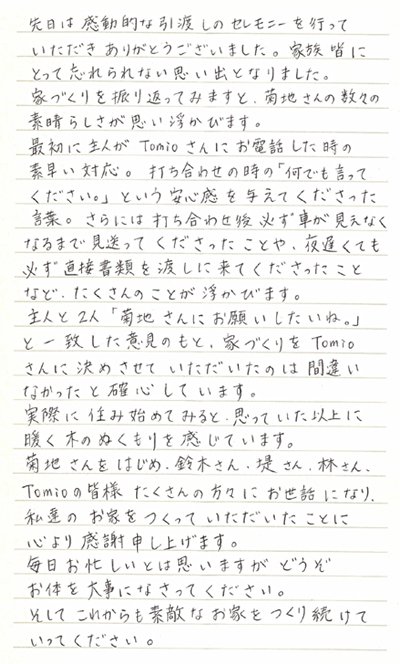 先日は感動的な引渡しのセレモニーを行って
いただきありがとうございました。家族皆に
とって忘れられない思い出となりました。
家づくりを振り返ってみますと、菊地さんの数々の
素晴らしさが思い浮かびます。
最初に主人がTomioさんにお電話した時の
素早い対応。打ち合わせの時の「何でも言って
ください。」という安心感を与えてくださった
言葉。さらには打ち合わせ後必ず車が見えなく
なるまで見送ってくださったことや、夜遅くても
必ず直接書類を渡しに来てくださったこと
など、たくさんのことが浮かびます。
主人と2人「菊地さんにお願いしたいね。」
と一致した意見のもと、家づくりをTomio
さんに決めさせていただいたのは間違い
なかったと確心しています。
実際に住み始めてみると、思っていた以上に
暖く木のぬくもりを感じています。
菊地さんをはじめ、鈴木さん、堤さん、林さん、
Tomioの皆様たくさんの方々にお世話になり、
私達のお家をつくっていただいたことに
心より感謝申し上げます。
毎日お忙しいとは思いますがどうぞ
お体を大事になさってください。
そしてこれからも素敵なお家をつくり続けて
いってください。